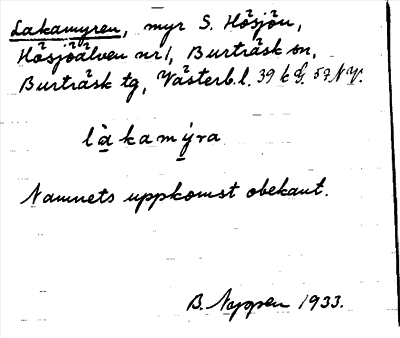 Lakamyren, myr S. Hösjön,
Hösjöälven nr 1, Burträsk sn,
Burträsk tg, Västerb. l. 39 k G. 57 NV.
làkamýra
Namnets uppkomst obekant.
B. 1933.